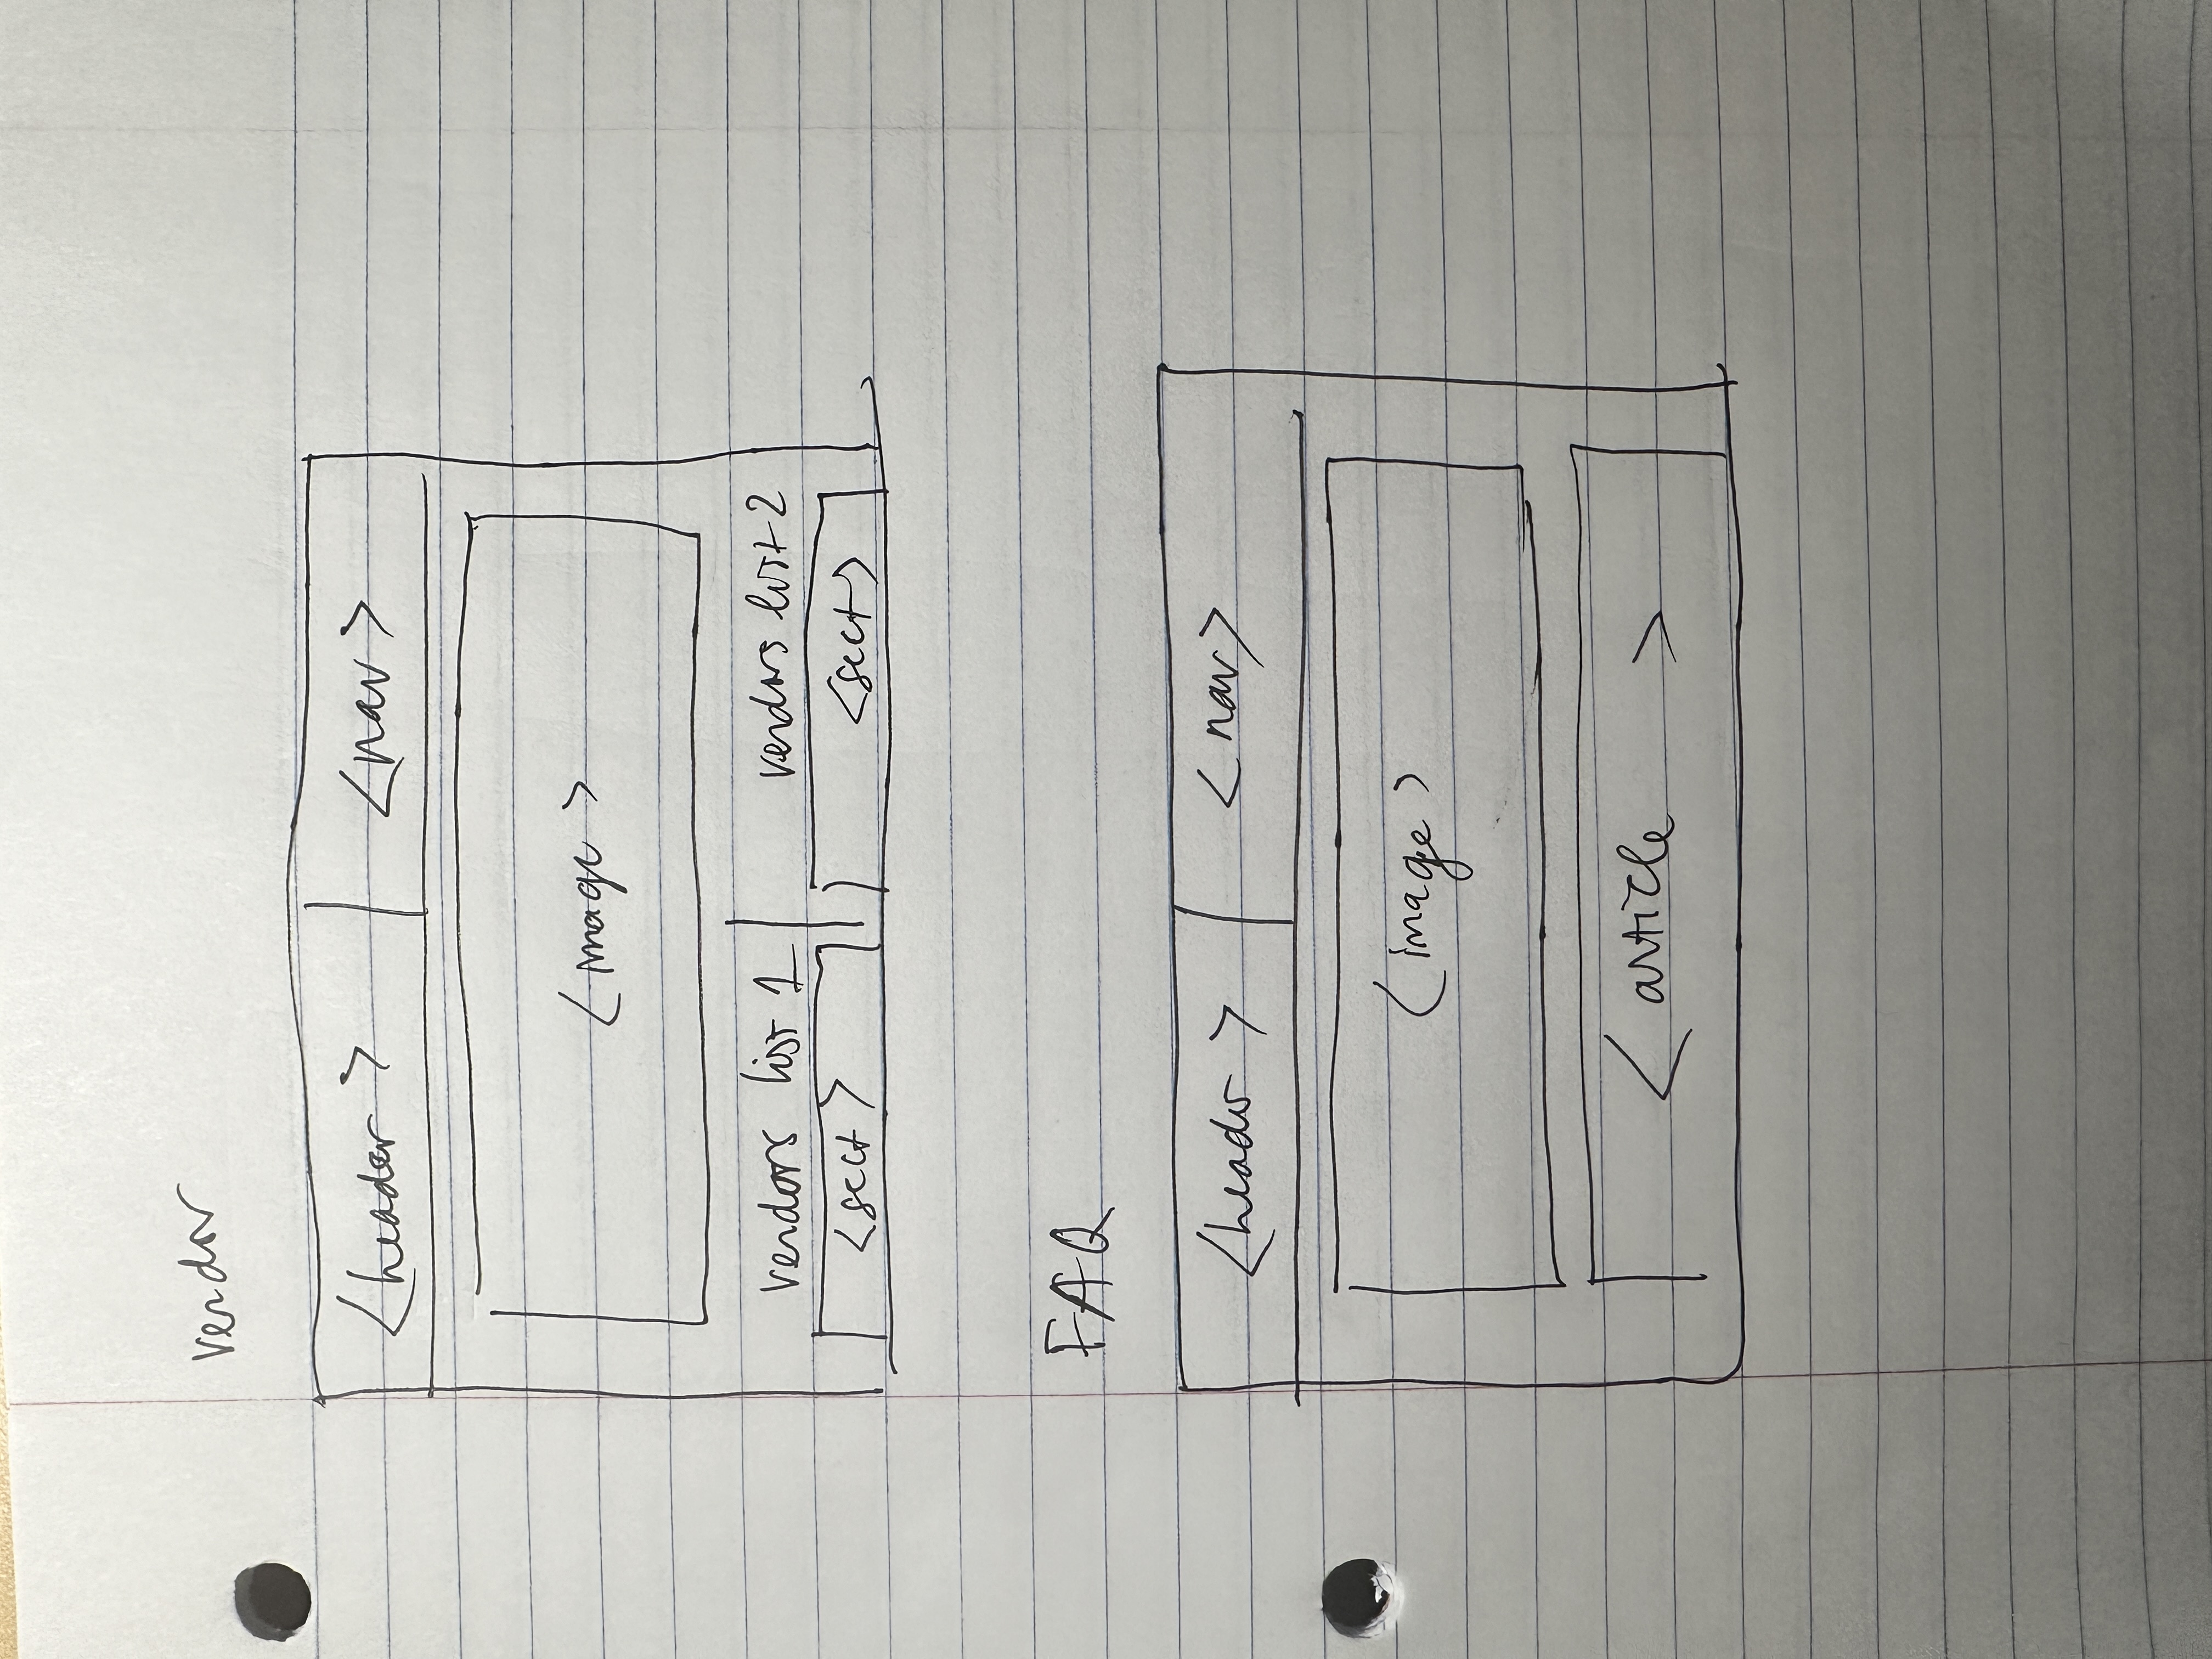 vendor
<header> <nav>
<image>
vendors list 1 vendors list 2
<sect> <sect>
FAQ
<header> <nav>
<image>
<article>